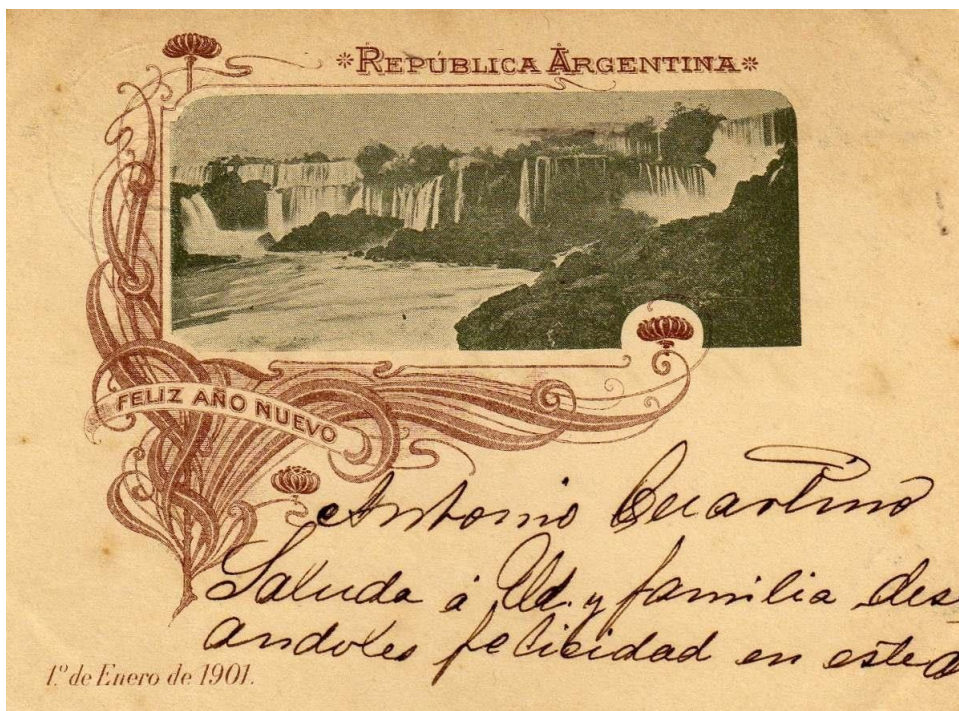 *REPÚBLICA ARGENTINA*
FELIZ AÑO NUEVO
Antonio
Saluda á Ud. y familia des
andoles felicidad en este
1.º de Enero de 1901.